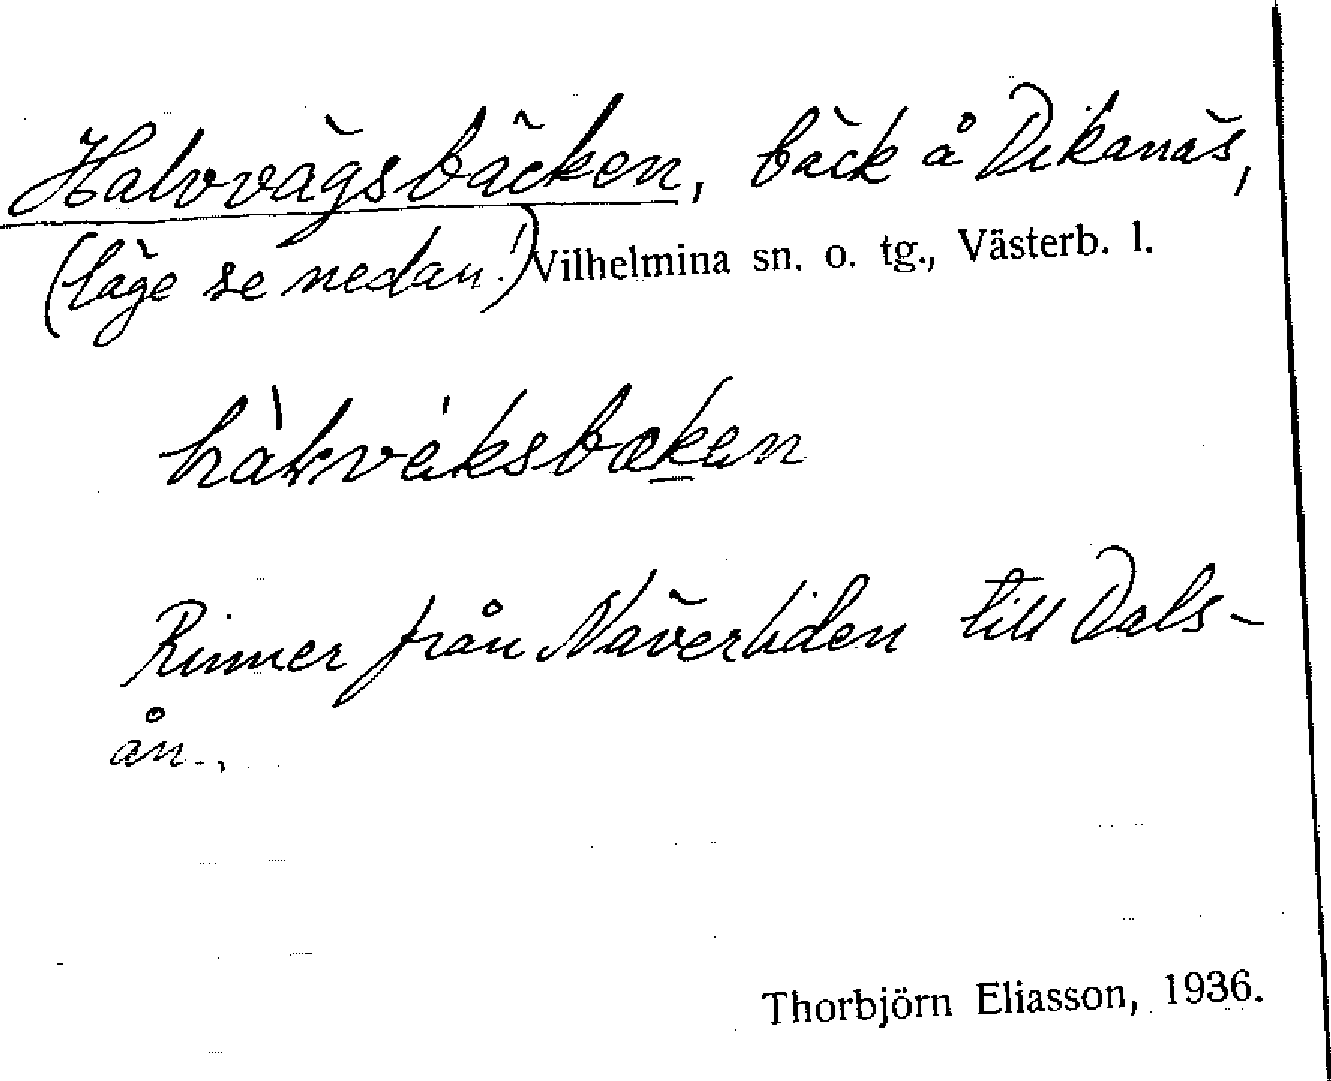 Halvvägsbäcken, bäck å Dikanäs,
(läge se nedan!) Vilhelmina sn. o. tg., Västerb. l.
Rinner från Näverliden till Dals-
ån.
Thorbjörn Eliasson, 1936.